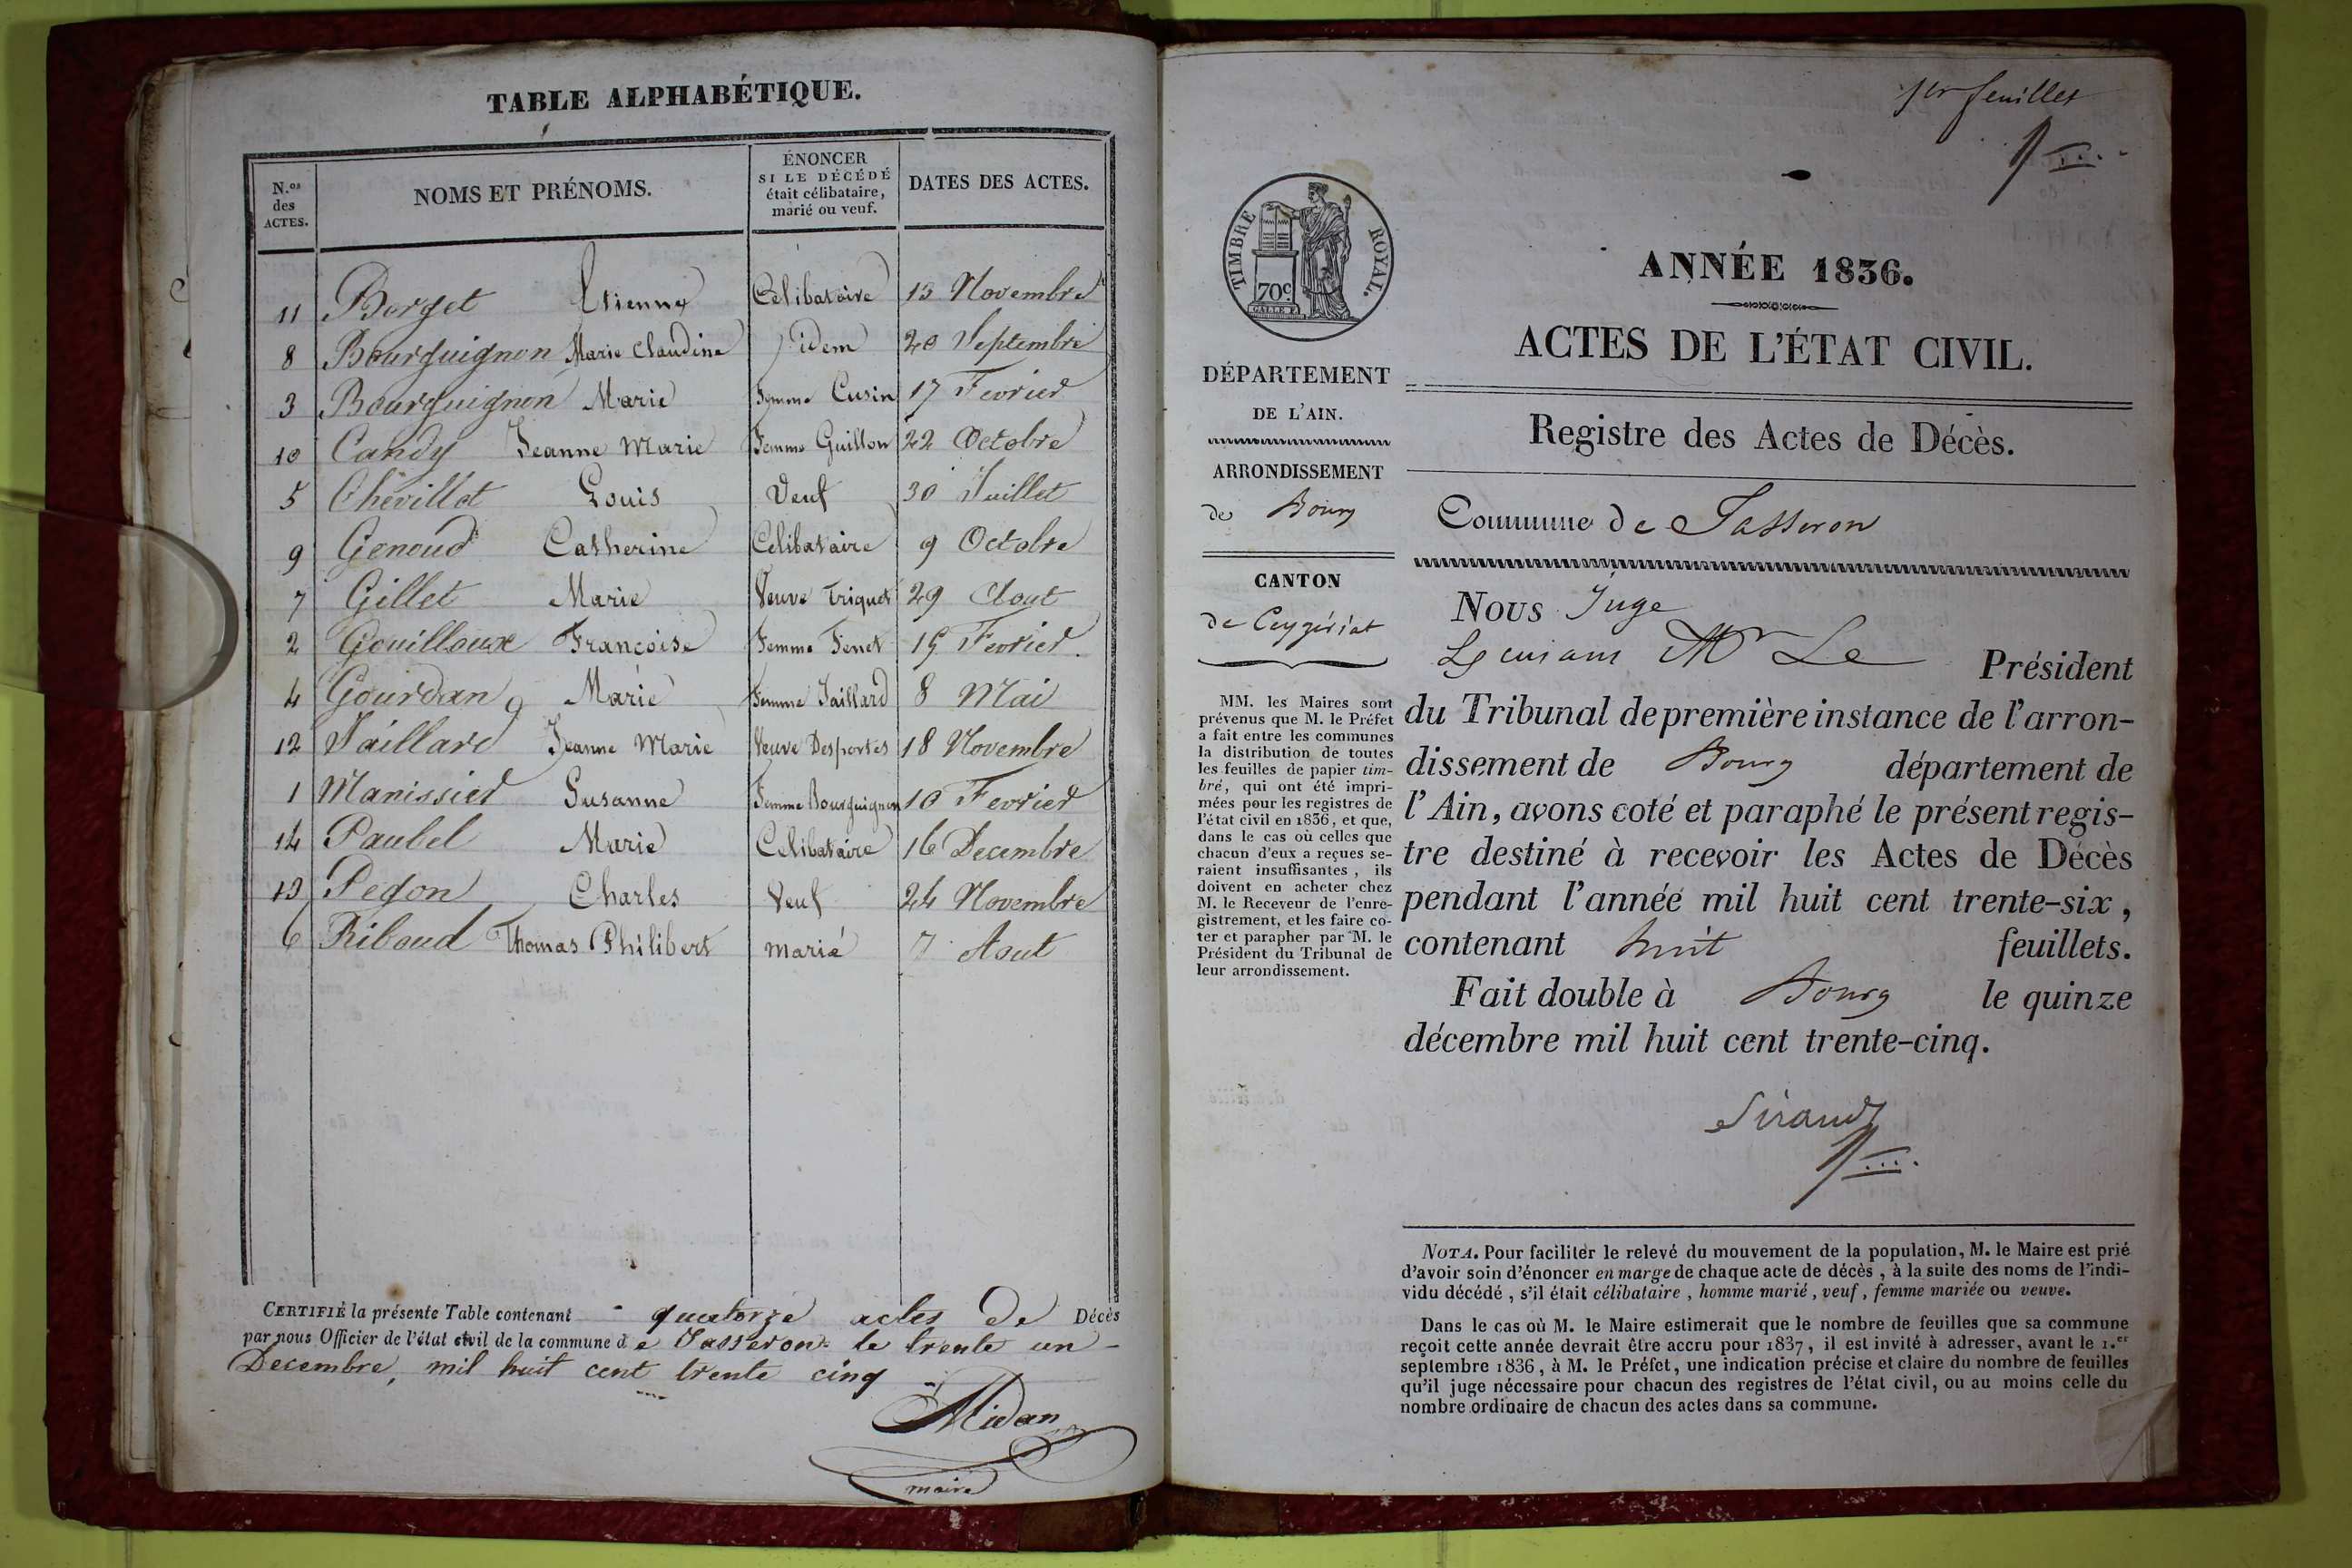 TABLE ALPHABÉTIQUE.
N.os des ACTES.
NOMS ET PRÉNOMS.
ÉNONCER SI LE DÉCÉDÉ était célibataire, marié ou veuf.
DATES DES ACTES.
11 Borget Etienne Célibataire 13 Novembre
8 Bourguignon Marie Claudine idem 20 Septembre
3 Bourguignon Marie Femme Cusin 17 Fevrier
10 Candy Jeanne Marie Femme Guillon 22 Octobre
5 Chevillot Louis Veuf 30 Juillet
9 Genoud Catherine Celibataire 9 Octobre
7 Gillet Marie Veuve Triquet 29 Aout
2 Gouilloux Francoise Femme Fenet 15 Fevrier.
4 Gourdan Marie Femme Jaillard 8 Mai
12 Jaillard Jeanne Marie Veuve Desportes 18 Novembre
1 Manissier Susanne Femme Bourguignon 10 Fevrier
14 Paubel Marie Celibataire 16 Decembre
13 Pegon Charles Veuf 24 Novembre
6 Riboud Thomas Philibert marié 7 Aout
CERTIFIÉ la présente Table contenant quatorze actes de Décès
par nous Officier de l'état civil de la commune de Jasseron le trente un
Decembre, mil huit cent trente cinq
Midan
maire
1er feuillet
TIMBRE ROYAL.
70c
ANNÉE 1836.
ACTES DE L'ÉTAT CIVIL.
Registre des Actes de Décès.
Commune de Jasseron
DÉPARTEMENT
DE L'AIN.
ARRONDISSEMENT
de Bourg
CANTON
de Ceyzériat
MM. les Maires sont
prévenus que M. le Préfet
a fait entre les communes
la distribution de toutes
les feuilles de papier tim-
bré, qui ont été impri-
mées pour les registres de
l'état civil en 1836, et que,
dans le cas où celles que
chacun d'eux a reçues se-
raient insuffisantes, ils
doivent en acheter chez
M. le Receveur de l'enre-
gistrement, et les faire co-
ter et parapher par M. le
Président du Tribunal de
leur arrondissement.
Nous Juge
Mr Le Président
du Tribunal de première instance de l'arron-
dissement de Bourg département de
l'Ain, avons coté et paraphé le présent regis-
tre destiné à recevoir les Actes de Décès
pendant l'année mil huit cent trente-six,
contenant huit feuillets.
Fait double à Bourg le quinze
décembre mil huit cent trente-cinq.
Sirand
NOTA. Pour faciliter le relevé du mouvement de la population, M. le Maire est prié
d'avoir soin d'énoncer en marge de chaque acte de décès, à la suite des noms de l'indi-
vidu décédé, s'il était célibataire, homme marié, veuf, femme mariée ou veuve.
Dans le cas où M. le Maire estimerait que le nombre de feuilles que sa commune
reçoit cette année devrait être accru pour 1837, il est invité à adresser, avant le 1.er
septembre 1836, à M. le Préfet, une indication précise et claire du nombre de feuilles
qu'il juge nécessaire pour chacun des registres de l'état civil, ou au moins celle du
nombre ordinaire de chacun des actes dans sa commune.